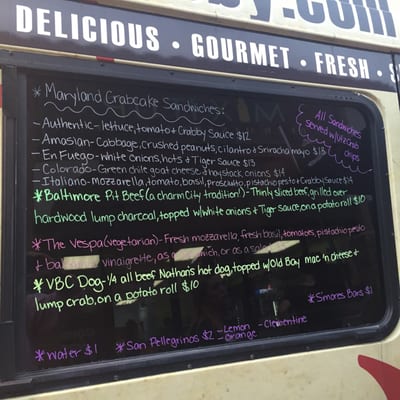 by.com
DELICIOUS • GOURMET • FRESH • S
* Maryland Crabcake Sandwiches:
- Authentic- lettuce, tomato + Crabby Sauce $12
- Amasian- Cabbage, crushed peanuts, cilantro + Sriracha mayo $13
- En Fuego- white onions, hots + Tiger Sauce $13
- Colorado- Green chile, goat cheese + haystack onions, $14
- Italiano- mozzarella, tomato, basil, prosciutto, pistachio pesto + Crabby Sauce $14
All Sandwiches
served w/ Utz Crab
Chips
* Baltimore Pit Beef (a charm City tradition!)- Thinly sliced beef, grilled over
hardwood lump charcoal, topped w/ white onions + Tiger Sauce, on a potato roll $10
* The Vespa (vegetarian)- Fresh mozzarella, fresh basil, tomatoes, pistachio pesto
+ vinaigrette, as a or as a
* VBC Dog- 1/4 all beef Nathan's hot dog, topped w/ Old Bay mac 'n cheese +
lump crab, on a potato roll $10
* S'mores Bars $1
* Water $1 * San Pellegrinos $2 - Lemon - Clementine
- Orange